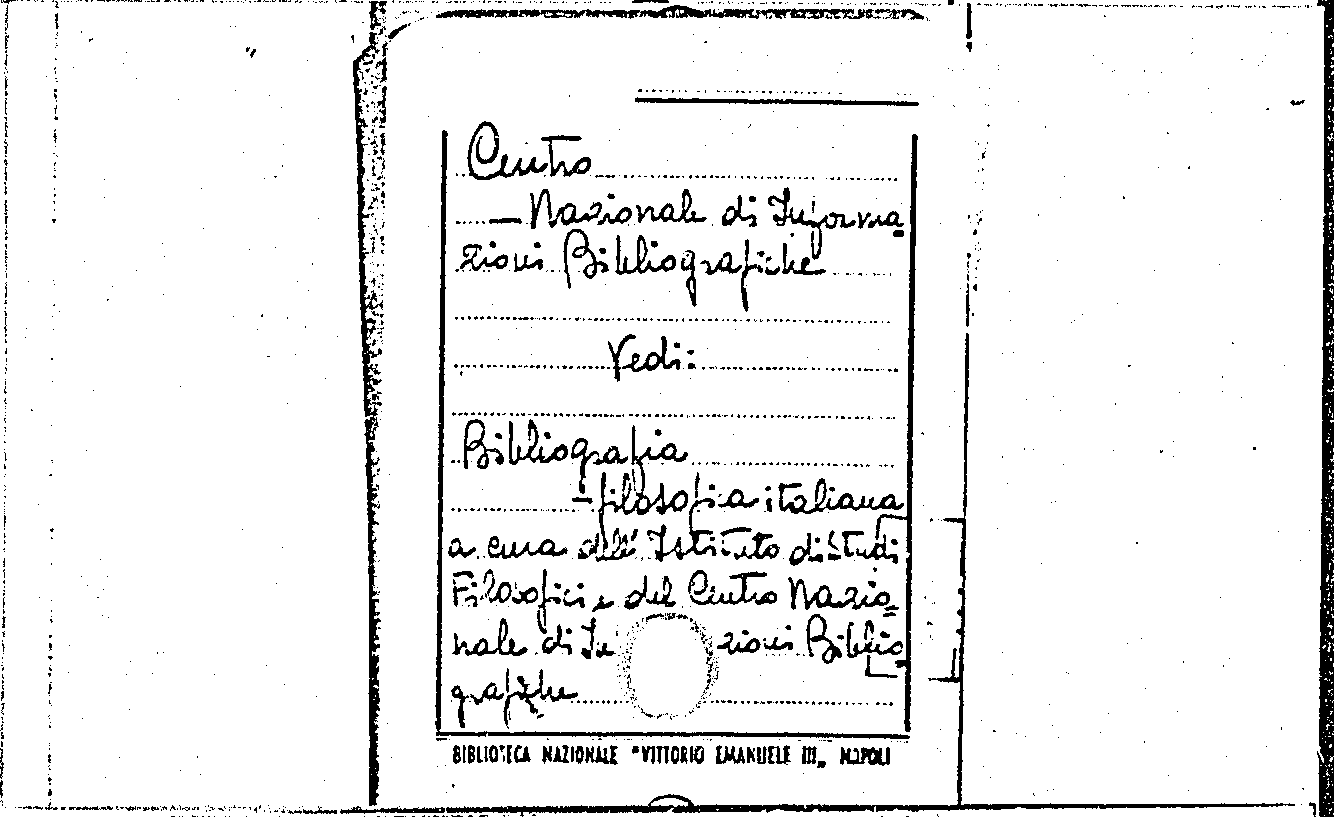 Centro
— Nazionale di Informa=
zioni Bibliografiche
Vedi:
Bibliografia
— filosofica italiana
a cura dell' Istituto di Studi
Filosofici e del Centro Nazio=
nale di In zioni Biblio=
grafiche
BIBLIOTECA NAZIONALE "VITTORIO EMANUELE III„ NAPOLI